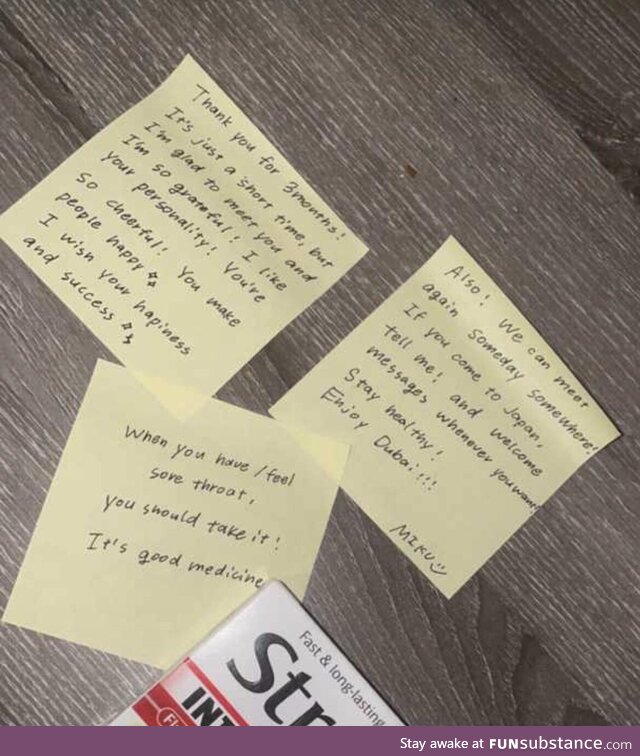 Thank you for 3mouths!
It's just a short time, but
I'm glad to meet you and
I'm so grateful! I like
your personality! You're
so cheerful! You make
people happy
I wish your hapiness
and success
Also! We can meet
again someday somewhere!
If you come to Japan,
tell me! and welcome
messages whenever you want!
Stay healthy!
Enjoy Dubai!!!
MIKU
When you have/feel
sore throat,
you should take it!
It's good medicine
Fast & long-lasting
Str
INT
Stay awake at FUNsubstance.com